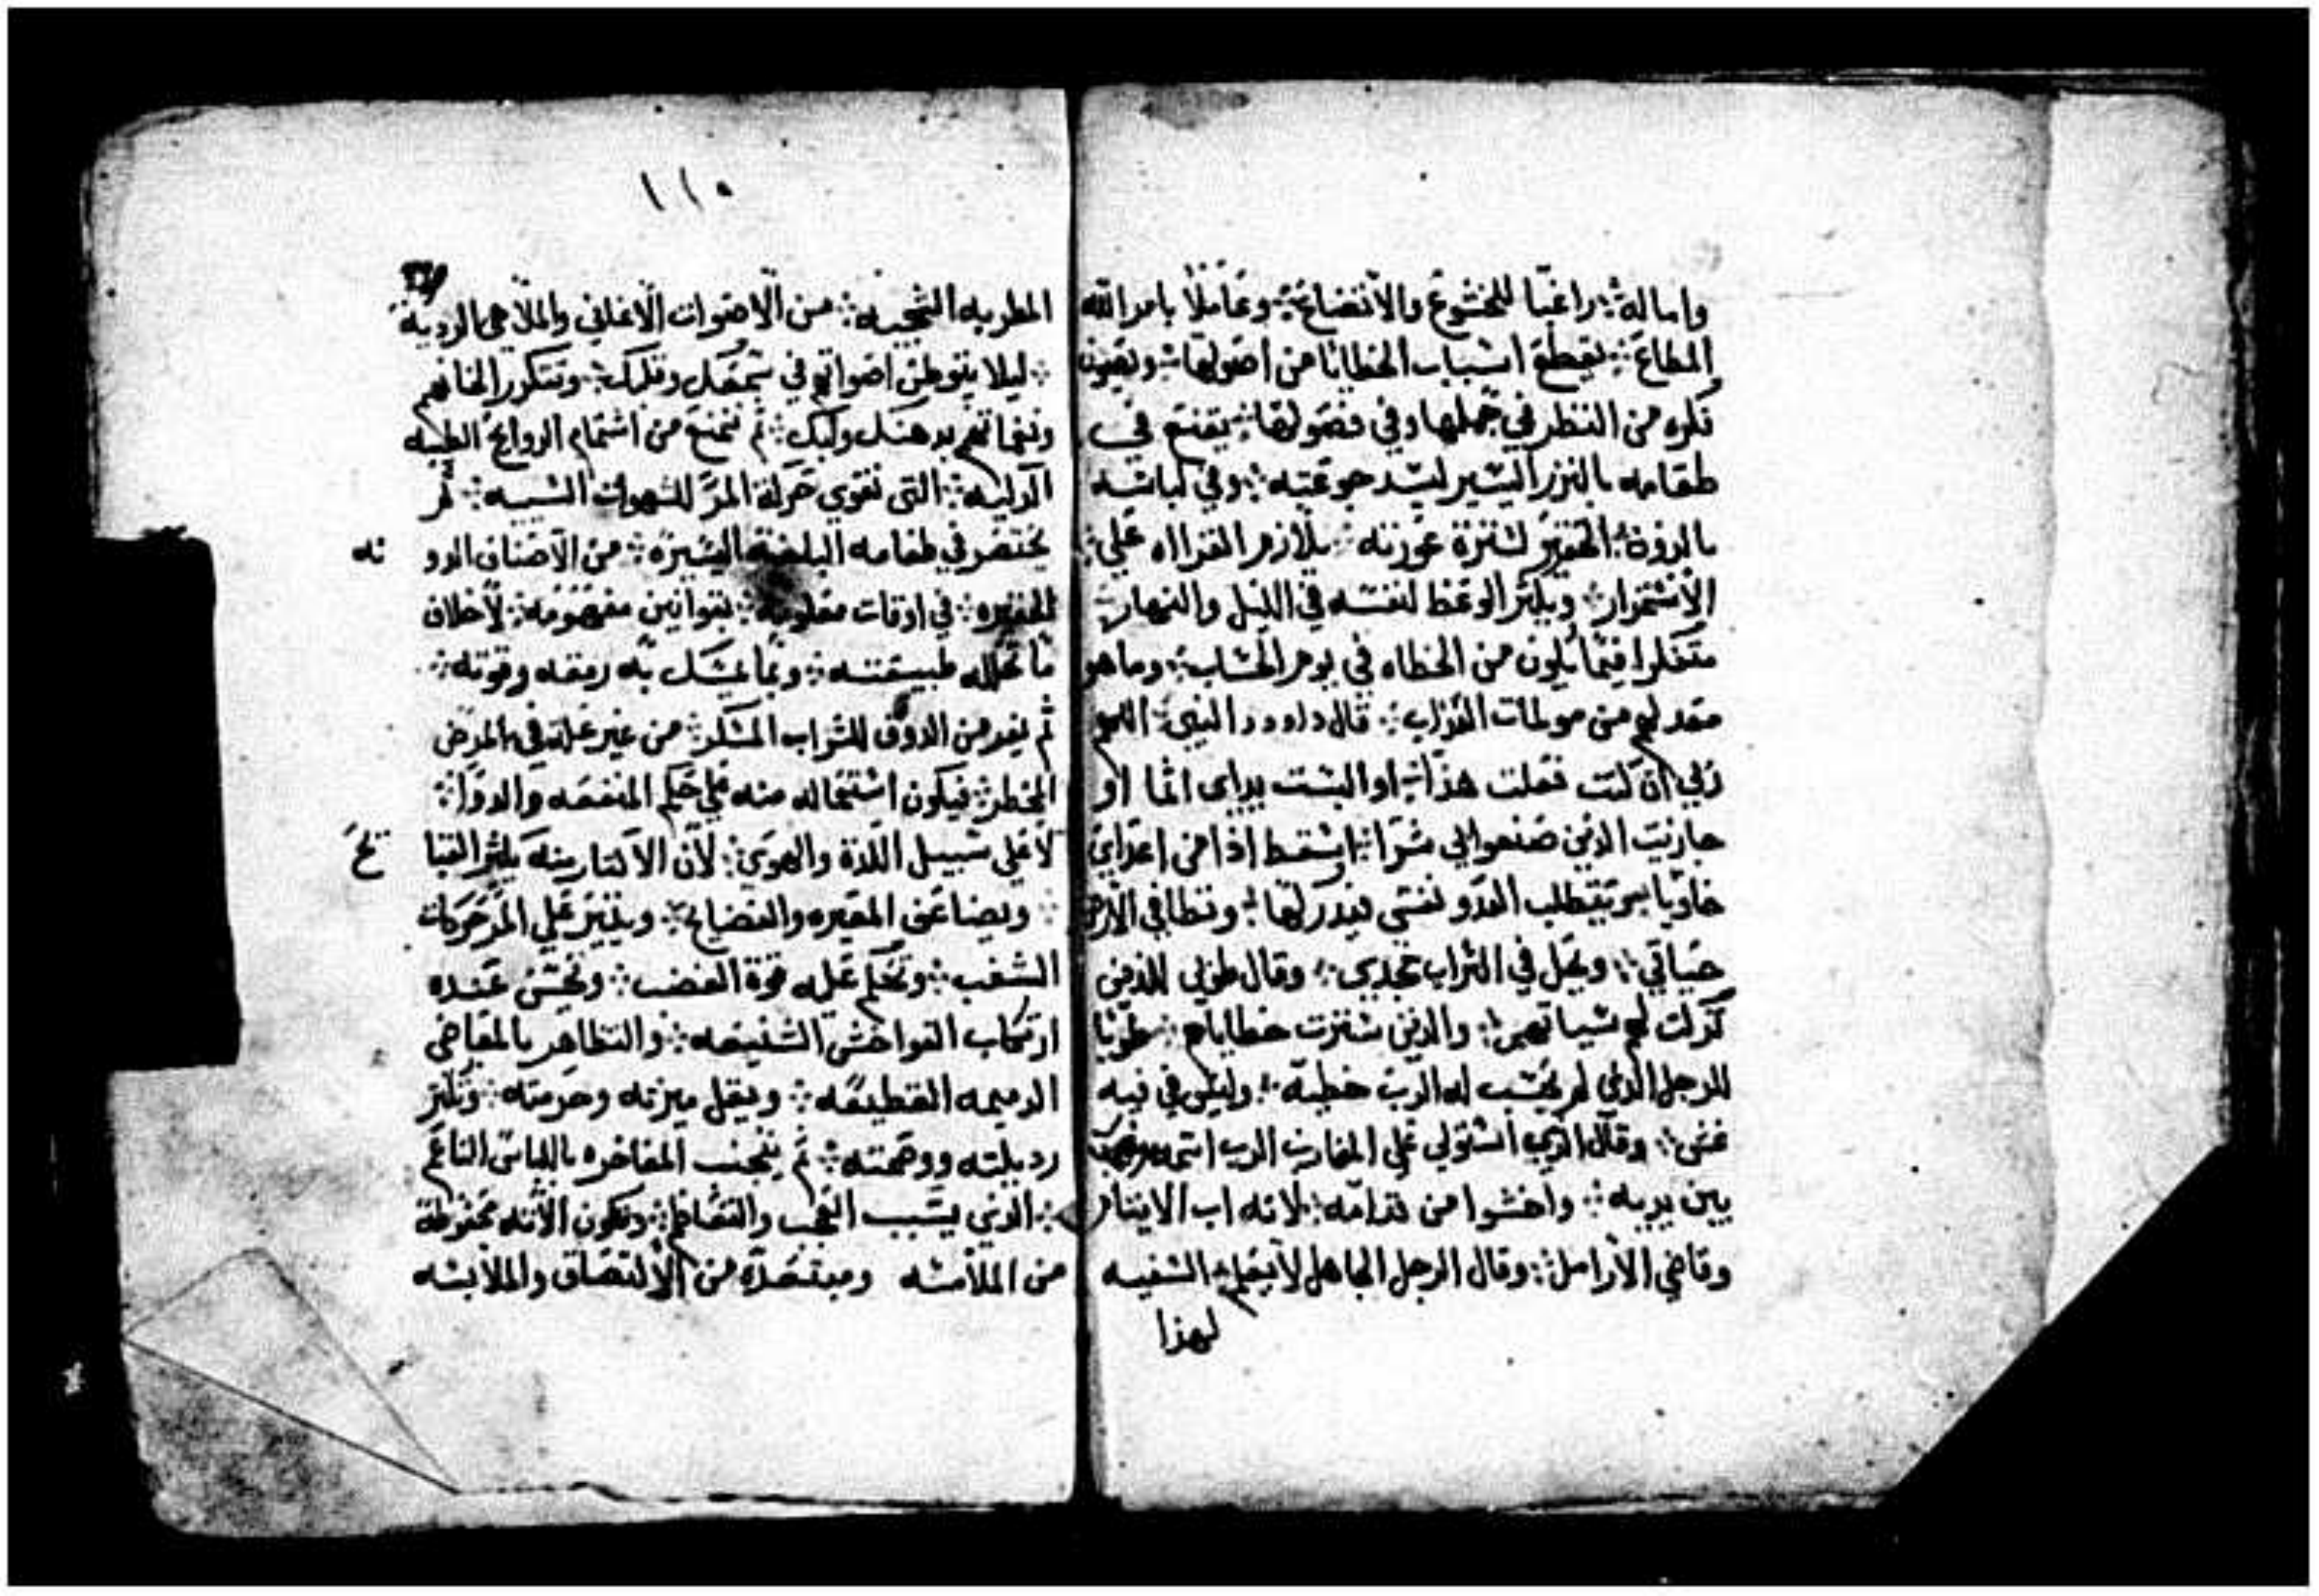 واماله ܀ راغبا للخشوع والاتضاع ܀ وعاملا بامر الله
المطاع ܀ يقطع اسباب الخطايا من اصولها ܀ ويصون
فكره من النظر في جملها وفي فصولها ܀ يقنع في
طعامه بالنزر اليسير ليسد جوعته ܀ وفي لباسه
بالدون الحقير لسترة عورته ܀ يلازم القراه علي
الاستمرار ܀ ويكثر الوعظ لنفسه في الليل والنهار ܀
متفكرا فيما يكون من الخطاه في يوم الحساب ܀ وما هو
معد لهم من مولمات العذاب ܀ قال داوود النبي ܀ اللهم
ربي ان كنت فعلت هذا ܀ او اكتست يداي اثما او
جازيت الذين صنعوا بي شرا ܀ اسقط اذا من اعداي
خاويا ܀ يطلب العدو نفسي فيدركها ܀ وتطا في الارض
حياتي ܀ ويحل في التراب مجدي ܀ وقال طوبي للذين
تركت لهم سياتهم ܀ والذين سترت خطاياهم ܀ طوبا
للرجل الذي لم يحسب له الرب خطية ܀ وليس في فيه
غش ܀ وقال الذي استولي علي المغارب الرب اسمه
بين يديه ܀ واخشوا من قدامه ܀ لانه اب الايتام
وقاضي الارامل ܀ وقال الرجل الجاهل لا يعلم ܀ السفيه
لهذا
١١٥
المطربه الشجيه ܀ من الاصوات الاغاني والملاهي الرديه
܀ ليلا يتوطن اصواتهم في سمعك وقلبك ܀ وتتكرر الحانهم
ونغماتهم بدهنك ولبك ܀ ثم تمتنع من اشتمام الروايح الطيبه
الدكيه ܀ التي تقوي حركة المر للشهوات السيه ܀ ثم
يختصر في طعامه البلغة اليسيره ܀ من الاصناف الدو نه
الحقيره ܀ في اوقات معلومه ܀ بقوانين مفهومه ܀ لاخلاف
ما تحلله طبيعته ܀ وبما يمسك به رمقه وقوته ܀
ثم يبعد من الدوق للشراب المسكر ܀ من غير علة في المرض
المخطر ܀ فيكون استعماله منه علي حكم المنفعه والدوا ܀
لا علي سبيل اللذة والهوي ܀ لان الاكثار منه يكثر القبا يح
܀ ويضاعف المعيره والفضايح ܀ ويثير علي المر حركات
الشغب ܀ وتحكم عليه قوة الغضب ܀ وتحسن عنده
ارتكاب الفواحش الشنيعه ܀ والتظاهر بالمعاصي
الدميمه الفظيعه ܀ ويقل ميزته وحرمته ܀ وتكثر
رديلته ووصمته ܀ ثم يتجنب المفاخره باللباس الناعم
܀ الذي يسبب العجب والتعاظم ܀ وتكون الاته محفوظة
من الملامسه ومبتعدة من الالتصاق والملابسه